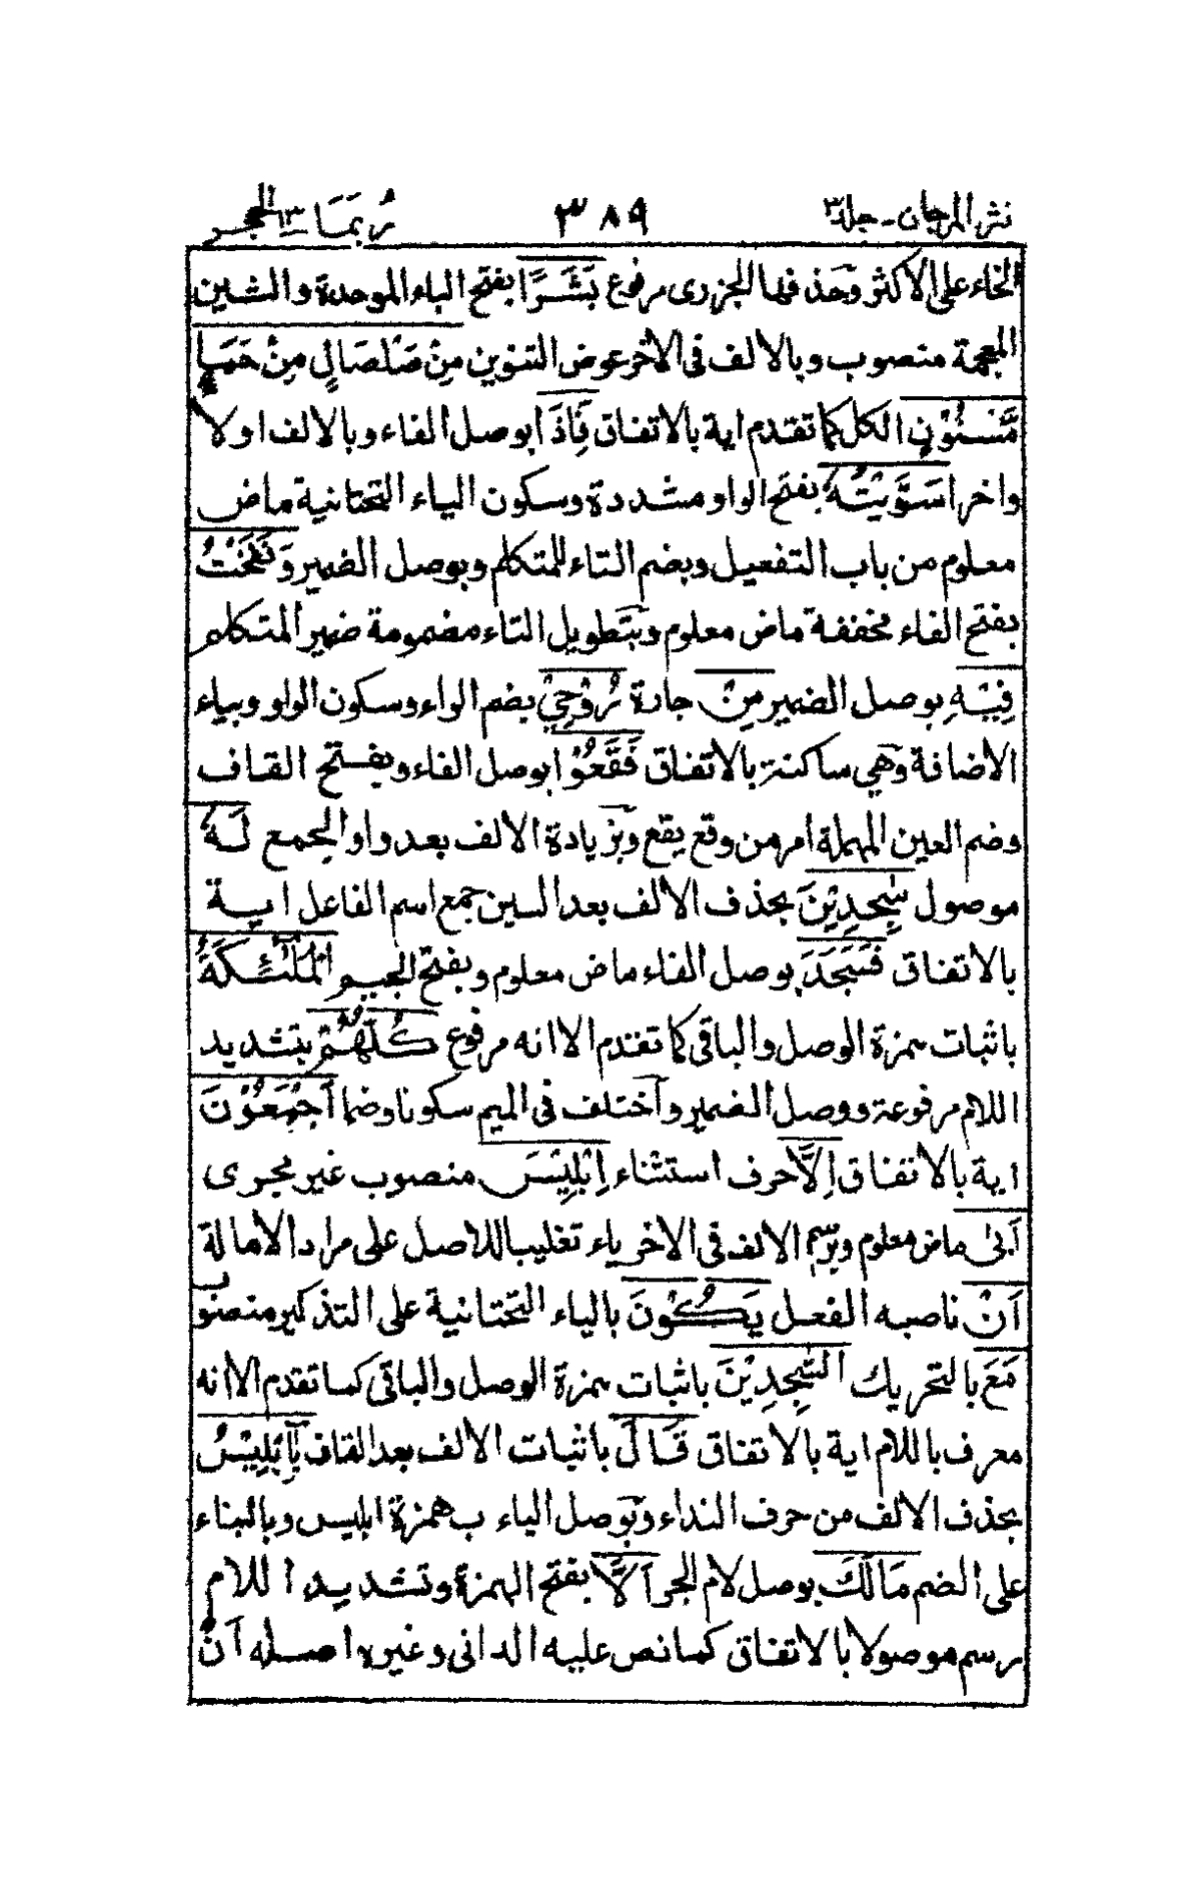 نثر المرجان - جلد ٣
٣٨٩
ربما ١٣ الحجر
الخاء على الاكثر وحذفها الجزرى مرفوع بَشَرًا بفتح الباء الموحدة والشين
المعجمة منصوب وبالالف فى الاخر عوض التنوين مِنْ صَلْصَالٍ مِنْ حَمَإٍ
مَّسْنُوْنٍ الكل كما تقدم اية بالاتفاق فَاِذَا بوصل الفاء وبالالف اولا
واخرا سَوَّيْتُهٗ بفتح الواو مشددة وسكون الياء التحتانية ماض
معلوم من باب التفعيل وبضم التاء للمتكلم وبوصل الضمير وَنَفَخْتُ
بفتح الفاء مخففة ماض معلوم وبتطويل التاء مضمومة ضمير المتكلم
فِيْهِ بوصل الضمير مِنْ جارة رُّوْحِيْ بضم الراء وسكون الواو وبياء
الاضافة وهي ساكنة بالاتفاق فَقَعُوْا بوصل الفاء وبفتح القاف
وضم العين المهملة امر من وقع يقع وبزيادة الالف بعد واو الجمع لَهٗ
موصول سٰجِدِيْنَ بحذف الالف بعد السين جمع اسم الفاعل اية
بالاتفاق فَسَجَدَ بوصل الفاء ماض معلوم وبفتح الجيم الْمَلٰٓئِكَةُ
باثبات همزة الوصل والباقى كما تقدم الا انه مرفوع كُلُّهُمْ بتشديد
اللام مرفوعة ووصل الضمير واختلف فى الميم سكونا وضما اَجْمَعُوْنَ
اية بالاتفاق اِلَّا حرف استثناء اِبْلِيْسَ منصوب غير مجرى
اَبٰى ماض معلوم وبرسم الالف فى الاخر ياء تغليبا للاصل على مراد الامالة
اَنْ ناصبه الفعل يَكُوْنَ بالياء التحتانية على التذكير منصوب
مَعَ بالتحريك السّٰجِدِيْنَ باثبات همزة الوصل والباقى كما تقدم الا انه
معرف باللام اية بالاتفاق قَالَ باثبات الالف بعد القاف يٰٓاِبْلِيْسُ
بحذف الالف من حرف النداء وبوصل الياء ب همزة ابليس وبالبناء
على الضم مَالَكَ بوصل لام الجر اَلَّا بفتح الهمزة وتشديد اللام
رسم موصولا بالاتفاق كما نص عليه الدانى وغيره اصله اَنْ